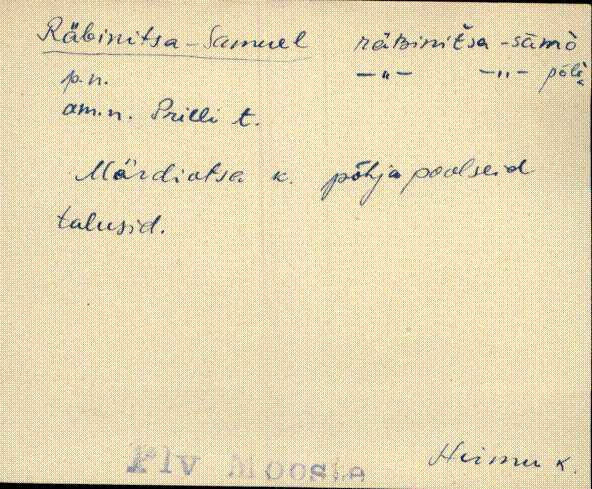 Räbinitsa-Samuel räbinitša-sämò
p.n. —"— —"— põl̀i̬
am.n. Prilli t.
Märdiotsa k. põhjapoolseid
talusid.
Plv Mooste
Heimu k.